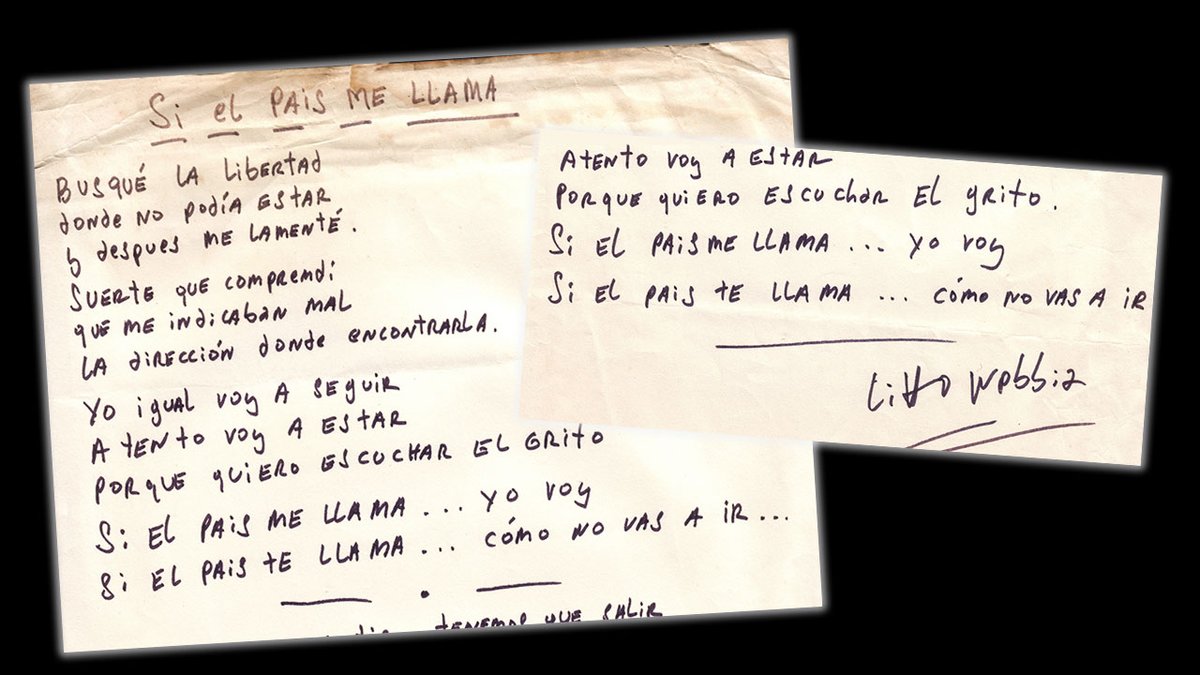 Si el PAiS ME LLAMA
BUSQUÉ LA LibERTAd
donde NO POdÍA ESTAR
y despues ME LAMENTÉ.
SUERTE QUE COMPRENdí
QUE ME iNdiCAbAN MAL
LA diRECCiÓN donde ENCONTRARLA.
YO igUAL VOY A SEGUiR
ATENTO VOY A ESTAR
PORQUE QUIERO ESCUCHAR EL GRiTO
Si EL PAiS ME LLAMA... YO VOY
Si EL PAiS TE LLAMA... CÓMO NO VAS A iR...
TENEMOS QUE SALiR
ATENTO VOY A ESTAR
PORQUE QUIERO ESCUCHAR EL GRITO.
Si EL PAIS ME LLAMA... YO VOY
Si EL PAIS TE LLAMA... CÓMO NO VAS A iR
Litto Nebbia